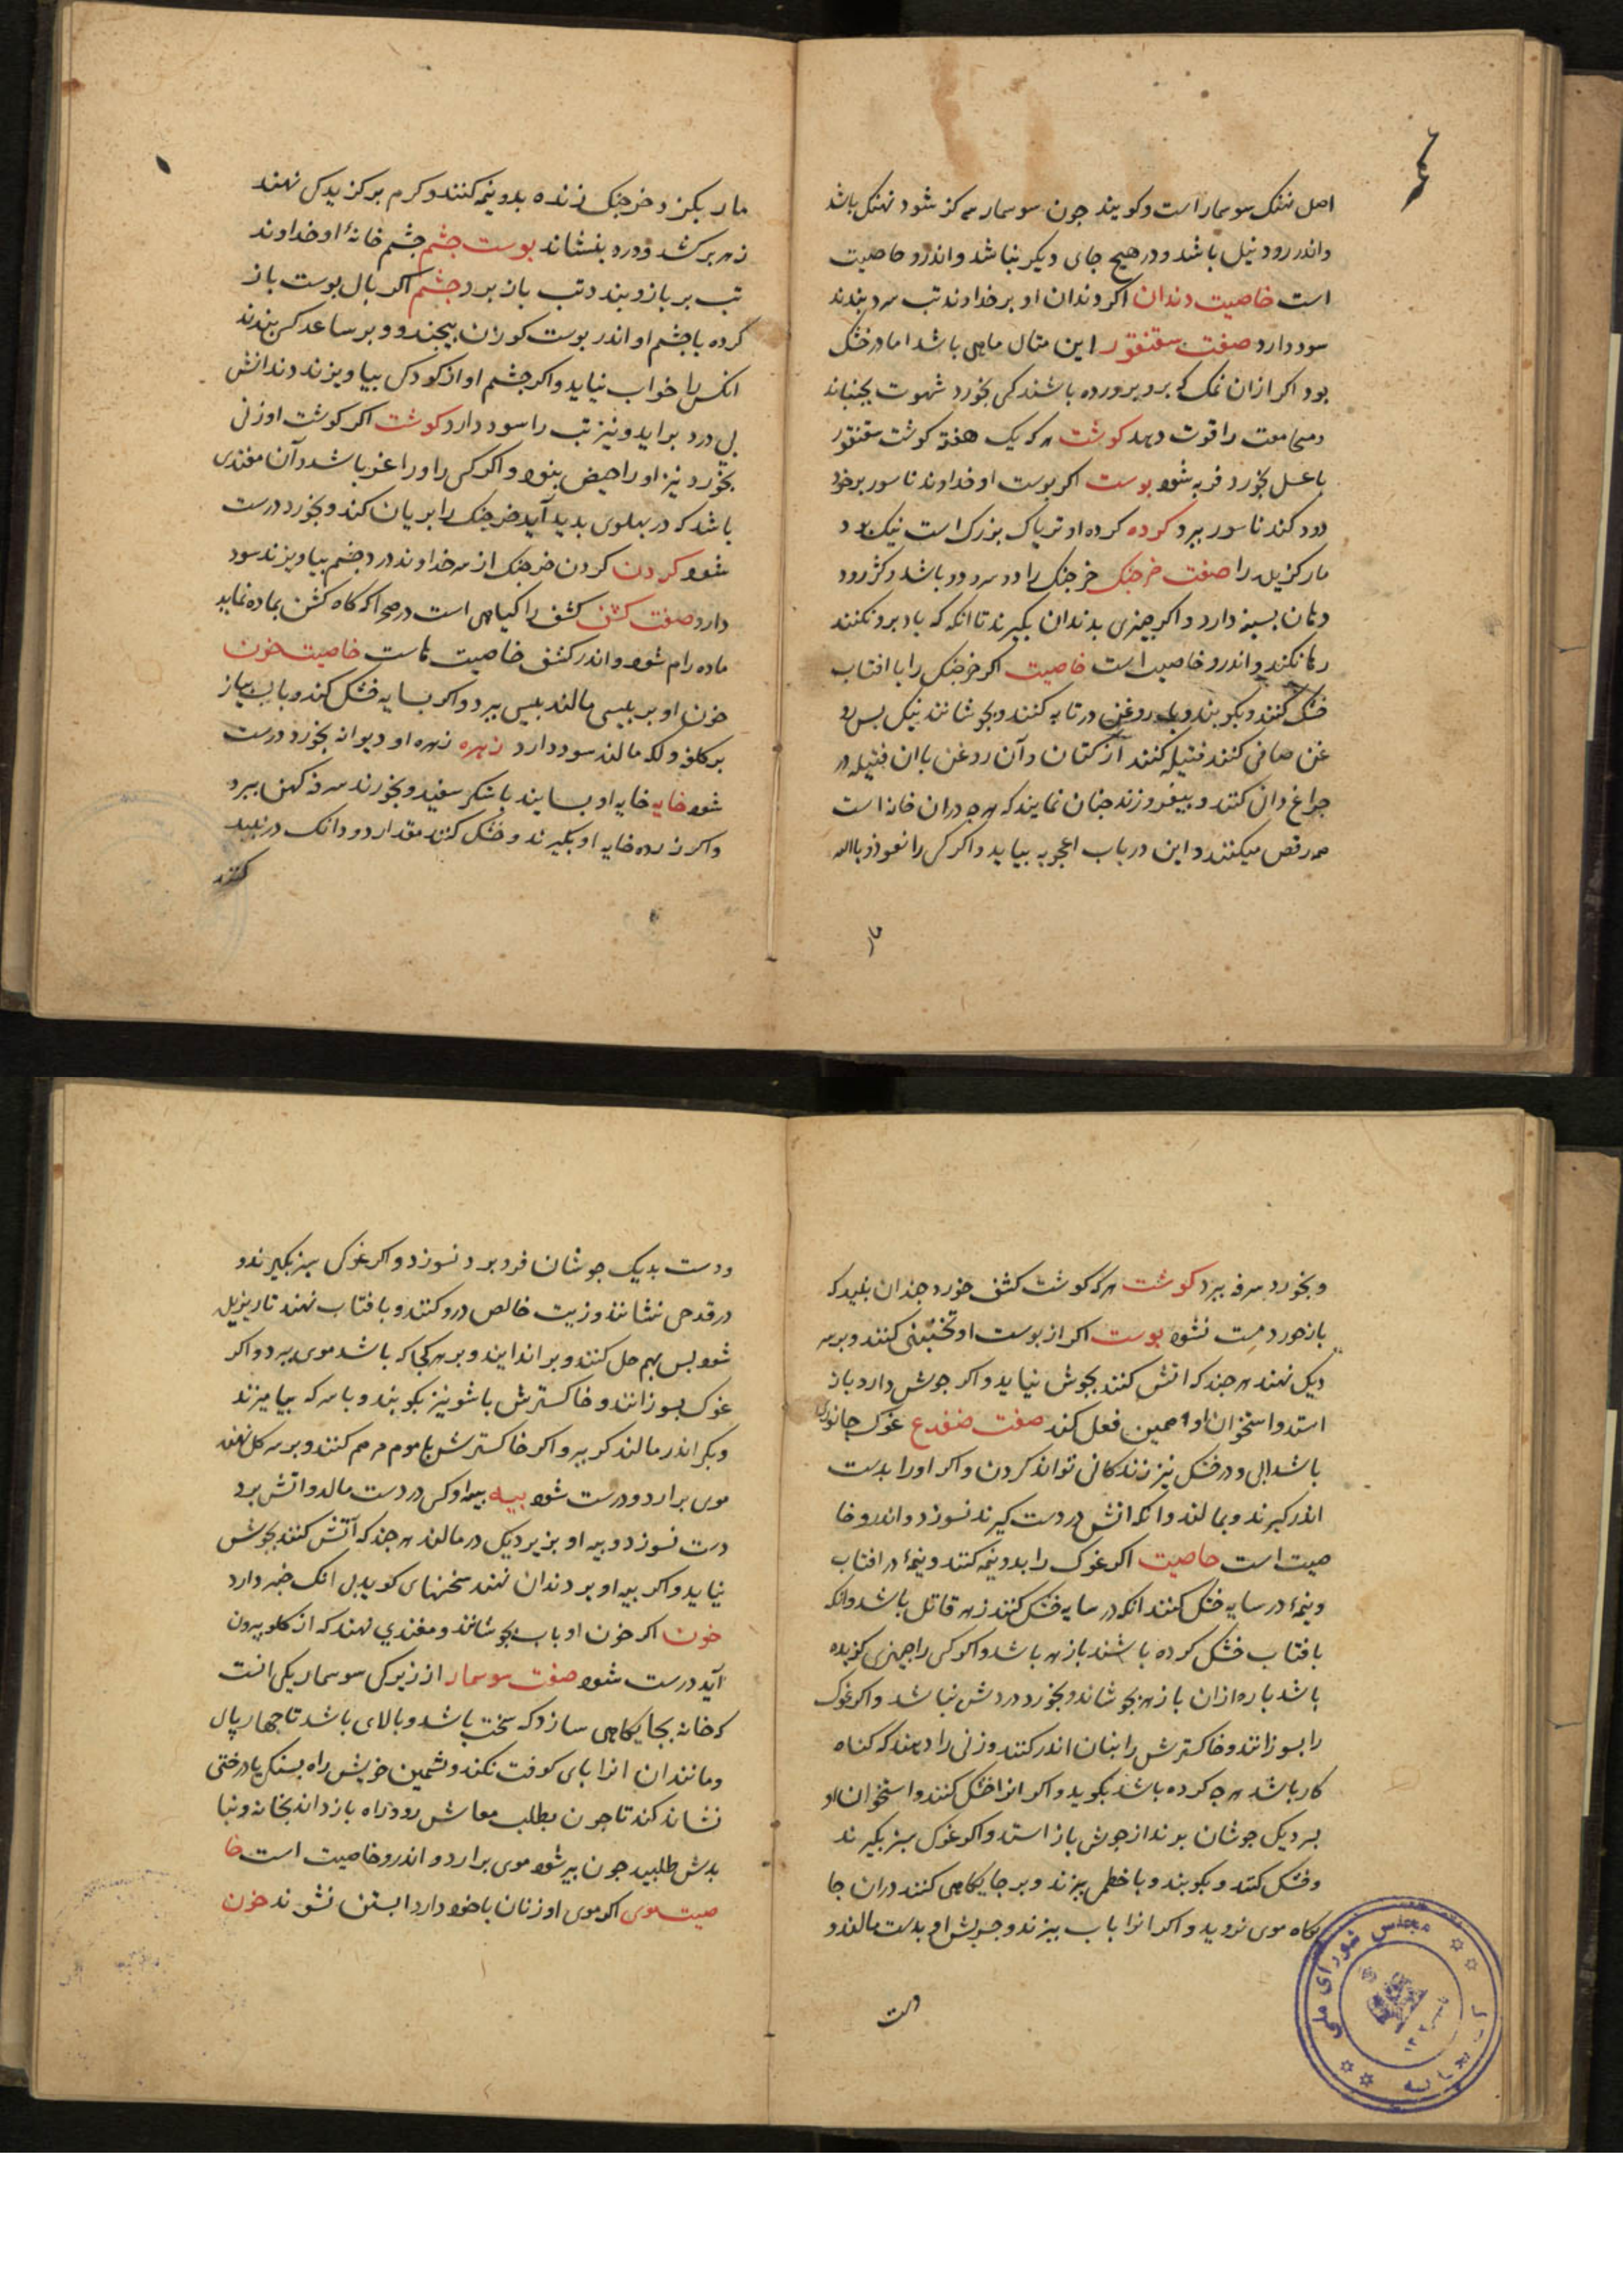 اصل نهنک سوسمار است و کویند جون سوسمار بزرک شود نهنک باشد
و اندر رود نیل باشد و در هیچ جای دیکر نباشد و اندرو خاصیت
است خاصیت دندان اکر دندان او بر خداوند تب سرد بندند
سود دارد صفت سقنقور این مثال ماهی باشد اما در خشک
بود اکر ازان نمک که برو پرورده باشند کسی بخورد شهوت بجنباند
و مجامعت را قوت دهد کوشت هر که یک هفته کوشت سقنقور
با عسل بخورد فربه شود بوست اکر بوست او خداوند ناسور بر خود
دود کند ناسور ببرد کرده کرده او تریاک بزرک است نیک بود
مار کزیده را صفت خرجنک خرجنک را دو سر دو باشد و کژ رود
و دهان بسینه دارد و اکر چیزی بدندان بکیرند تا انکه که باد برو نکنند
رها نکند و اندرو خاصیت است خاصیت اکر خرجنک را با افتاب
خشک کنند و بکوبند و با روغن در تابه کنند و بجوشانند نیک بس رو
غن صافی کنند فتیله کنند از کتان و آن روغن با ان فتیله در
جراغ دان کنند و بیفروزند جنان نمایند که هر چه دران خانه است
همه رقص میکنند و این در باب اعجوبه بیاید و اکر کس را نعوذ بالله
مار
مار بکزد خرجنک زنده بدو نیمه کنند و کرم بر کزیدکی نهند
زهر برکشد و درد بنشاند بوست جشم جشم خانهٔ او خداوند
تب بر بازو بندد تب باز برد جشم اکر بال بوست باز
کرده با جشم او اندر بوست کوزن بیجند و بر ساعد کسی بندند
انکس را خواب نیاید و اکر جشم او از کودکی بیاویزند دندانش
بی درد براید و نیز تب را سود دارد کوشت اکر کوشت او زنی
بخورد نیز او را حیض بنود و اکر کسی را ورا غر باشد و آن مغندی
باشد که در بهلوی بدید آید خرجنک را بریان کند و بخورد درست
شود کردن کردن خرجنک از سر خداوند درد جشم بیاویزند سود
دارد صفت کشف کشف را کیاهی است در صحرا که کاه کشن بماده نماید
ماده رام شود و اندر کشف خاصیت هاست خاصیت خون
خون او بر بلیسی مالند بلیس ببرد و اکر بسایه خشک کند و با آب بیاز
بر کلف و لکه مالند سود دارد زهره زهره او دیوانه بخورد درست
شود خایه خایه او بسایند با شکر سفید و بخورند سرفه کهن ببرد
و اکر زرده خایه او بکیرند و خشک کنند مقدار دو دانک در نبید
کنند
و بخورد سرفه ببرد کوشت هر که کوشت کشف خورد جندان بنبید که
بازخورد مست نشود بوست اکر از بوست او نخبنی کنند و بر سر
دیک نهند هر جند که اتش کنند بجوش نیاید و اکر جوش دارد باز
استد و استخوان او همین فعل کند صفت ضفدع غوک جانوری
باشد ابی و در خشک نیز زندکانی تواند کردن و اکر او را بدست
اندر کیرند و بمالند و انکه اتش در دست کیرند نسوزد و اندرو خا
صیت است خاصیت اکر غوک را بدو نیمه کنند و نیمهٔ در افتاب
و نیمهٔ در سایه خشک کنند انکه در سایه خشک کنند زهر قاتل باشد و انکه
بافتاب خشک کرده باشند باز هر باشد و اکر کسی را چیزی کزیده
باشد باره ازان باز هر بجوشاند و بخورد دردش نباشد و اکر غوک
را بسوزانند و خاکسترش را بنان اندر کنند و زنی را دهند که کناه
کار باشد هر چه کرده باشد بکوید و اکر انرا خشک کنند و استخوان او
بر دیک جوشان بوند از جوش باز استد و اکر غوک سبز بکیرند
و خشک کنند و بکوبند و با خطمی بپزند و بر جایکاهی کنند دران جا
یکاه موی نروید و اکر انرا باب بپزند و جربش او بدست مالند و
دست
و دست بدیک جوشان فرو برد نسوزد و اکر غوک سبز بکیرند و
در قدحی نشانند و زیت خالص درو کنند و بافتاب نهند تا ریزیده
شود بس بهم حل کنند و بر اندایند و بر هر کجا که باشد موی ببرد و اکر
غوک بسوزانند و خاکسترش با شونیز بکوبند و با سرکه بیامیزند
و بکر اندر مالند کر ببرد اکر خاکسترش با موم مرهم کنند و بر سر کل نهند
موی برارد و درست شود بیه بیه او کسی در دست مالد و اتش برد
درست نسوزد و بیه او بزیر دیک در مالند هر جند که آتش کنند بجوش
نیاید و اکر بیه او بر دندان نهند سخنهای کوید بدل انک خبر دارد
خون اکر خون او باب بجوشانند و مغندی نهند که از کلو بیرون
آید درست شود صفت سوسمار از زیرکی سوسمار یکی انست
که خانه بجایکاهی سازد که سخت باشد و بالای باشد تا چهار پال
و مانند ان انرا بای کوفت نکند و نشمین خویش راه بسنک یا درختی
نشان کند تا چون بطلب معاش رود راه باز داند بخانه و نیا
بدش طلبید جون بیر شود موی برارد و اندرو خاصیت است خا
صیت موی اکر موی او زنان با خود دارد ابستن نشوند خون
مجلس شورای ملی